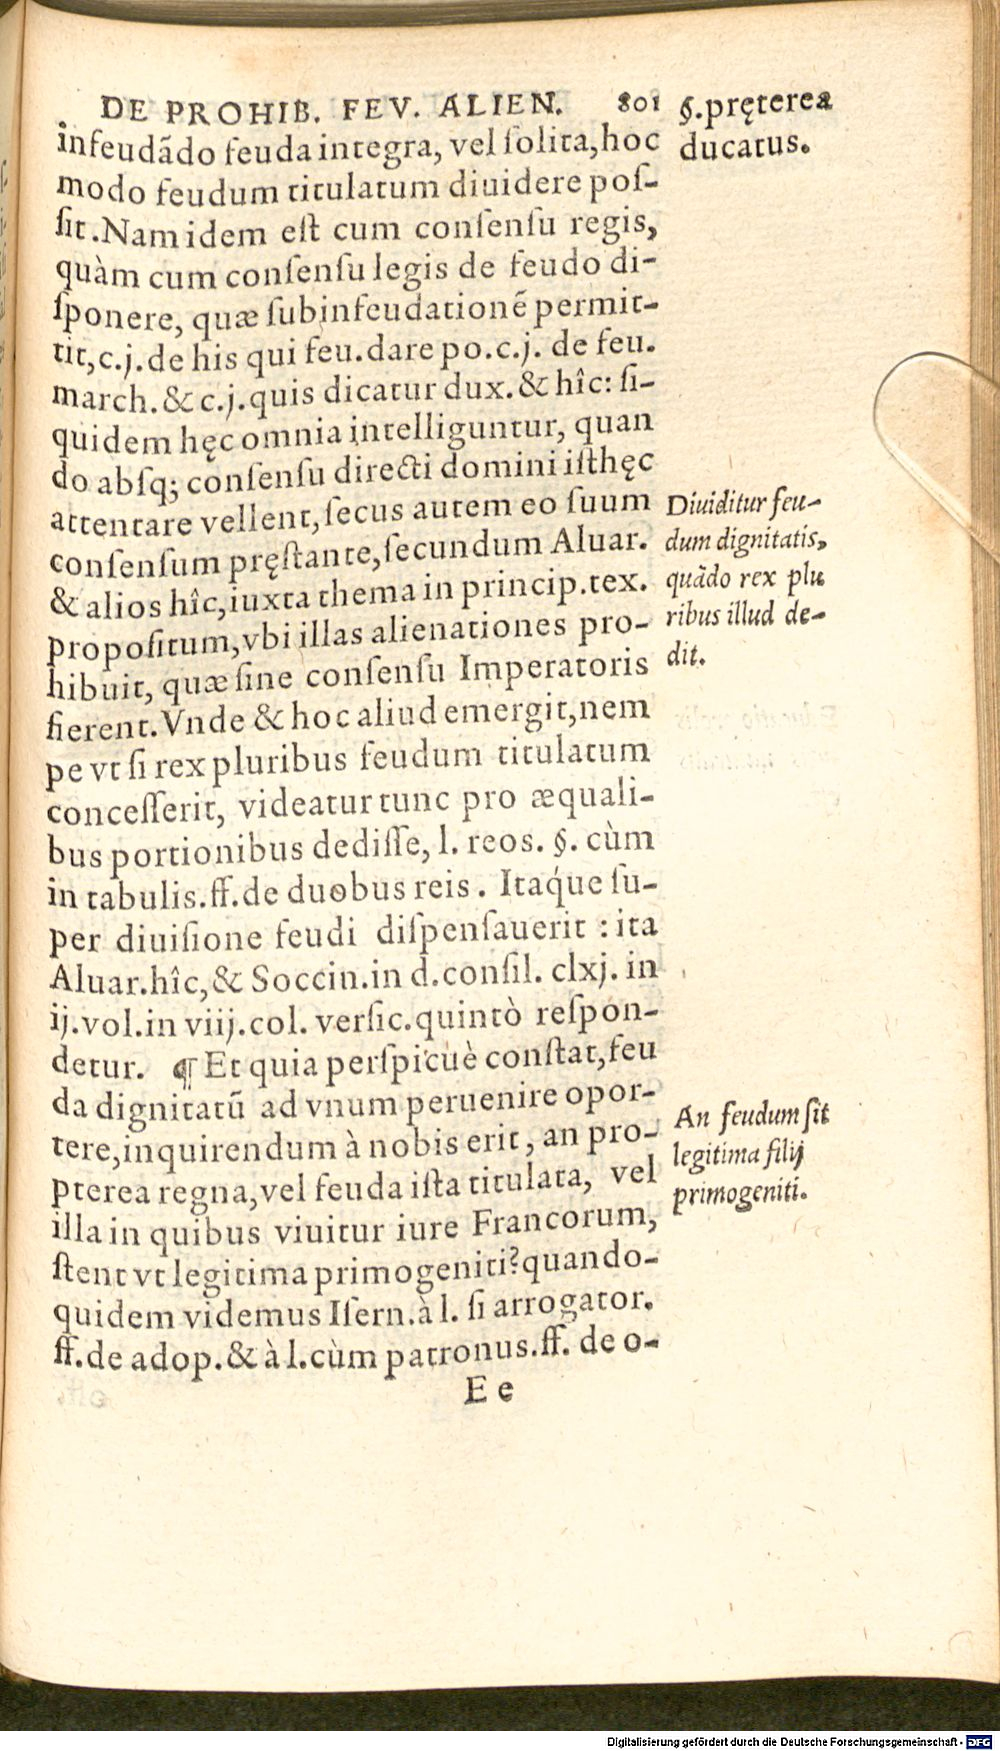 DE PROHIB. FEV. ALIEN. 801
§.pręterea
ducatus.
infeudãdo feuda integra, vel ſolita, hoc
modo feudum titulatum diuidere poſ-
ſit. Nam idem eſt cum conſenſu regis,
quàm cum conſenſu legis de feudo di-
ſponere, quæ ſubinfeudationẽ permit-
tit, c.j. de his qui feu. dare po. c.j. de feu.
march. & c.j. quis dicatur dux. & hîc: ſi-
quidem hęc omnia intelliguntur, quan
do abſq; conſenſu directi domini iſthęc
attentare vellent, ſecus autem eo ſuum
conſenſum pręſtante, ſecundum Aluar.
& alios hîc, iuxta thema in princip. tex.
propoſitum, vbi illas alienationes pro-
hibuit, quæ ſine conſenſu Imperatoris
fierent. Vnde & hoc aliud emergit, nem
pe vt ſi rex pluribus feudum titulatum
conceſſerit, videatur tunc pro æquali-
bus portionibus dediſſe, l. reos. §. cùm
in tabulis. ff. de duobus reis. Itaq́ue ſu-
per diuiſione feudi diſpenſauerit : ita
Aluar. hîc, & Soccin. in d. conſil. clxj. in
ij. vol. in viij. col. verſic. quintò reſpon-
detur. ¶ Et quia perſpicuè conſtat, feu
da dignitatũ ad vnum peruenire opor-
tere, inquirendum à nobis erit, an pro-
pterea regna, vel feuda iſta titulata, vel
illa in quibus viuitur iure Francorum,
ſtent vt legitima primogeniti? quando-
quidem videmus Iſern. à l. ſi arrogator.
ff. de adop. & à l. cùm patronus. ff. de o-
E e
Diuiditur feu-
dum dignitatis,
quãdo rex plu
ribus illud de-
dit.
An feudum ſit
legitima filij
primogeniti.
Digitalisierung gefördert durch die Deutsche Forschungsgemeinschaft - DFG